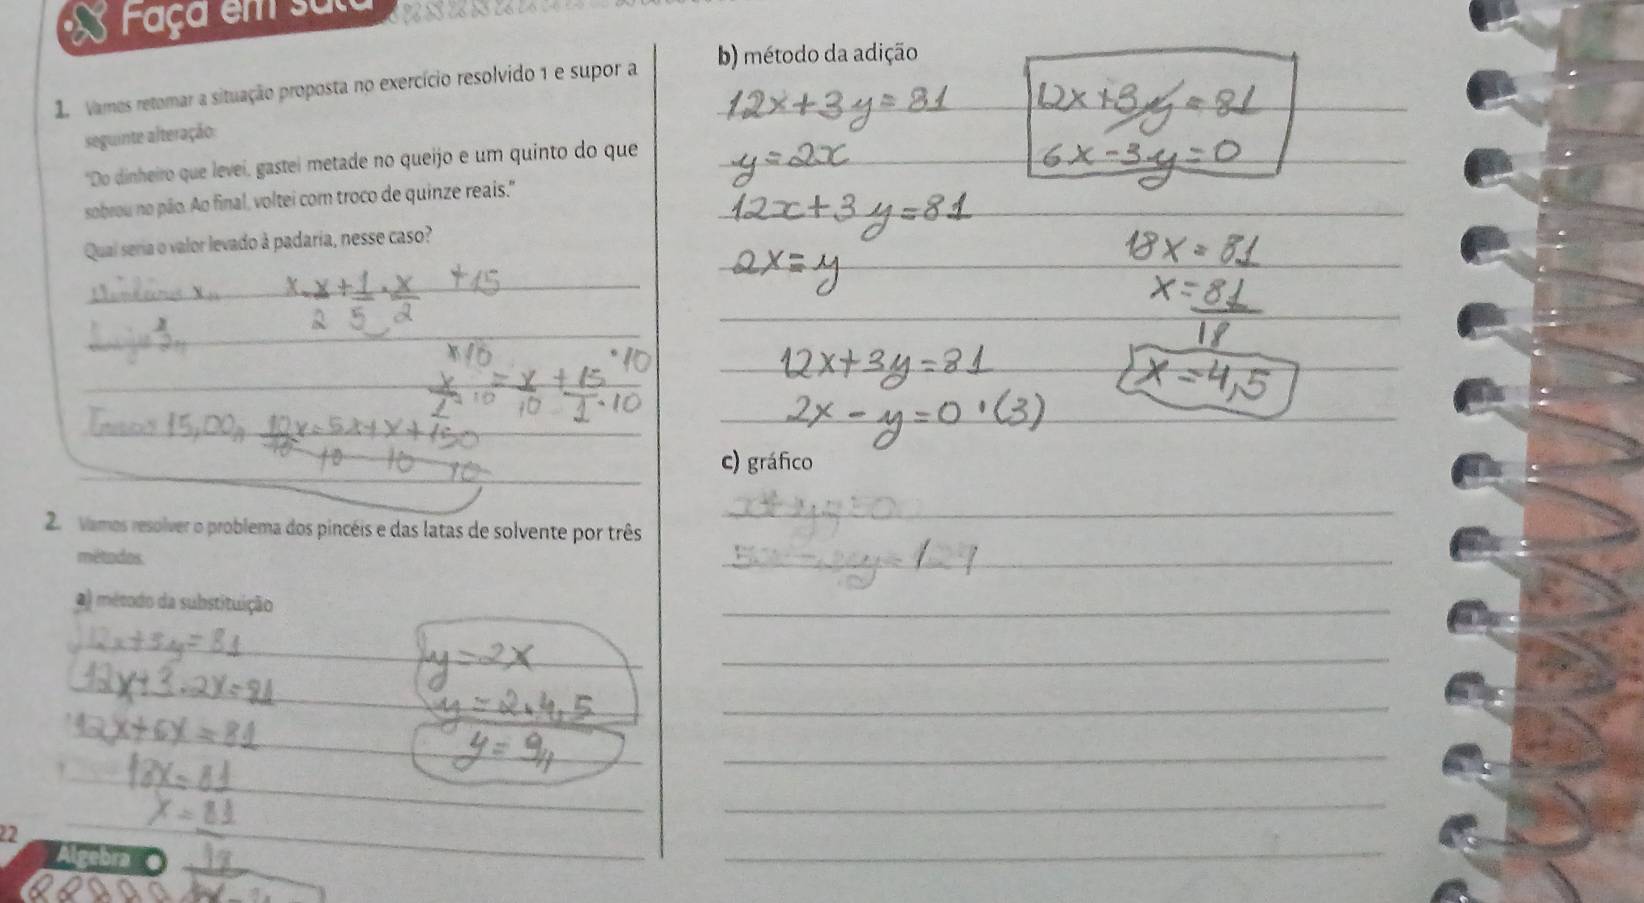 Faça em sala
1. Vamos retomar a situação proposta no exercício resolvido 1 e supor a
seguinte alteração:
"Do dinheiro que levei, gastei metade no queijo e um quinto do que
sobrou no pão. Ao final, voltei com troco de quinze reais."
Qual seria o valor levado à padaria, nesse caso?
x = x/2 + 1/5 . x/2 + 15
15,00 10x = 5x + x + 150
2. Vamos resolver o problema dos pincéis e das latas de solvente por três
métodos.
a) método da substituição
12x+3y=81
12x+3.2x=81
12x+6x=81
18x=81
x=81
18
y=2x
y=2.4,5
y=9
22
Álgebra
b) método da adição
12x+3y=81
y=2x
12x+3y=81
2x=y
12x+3y=81
2x-y=0.(3)
12x+3y=81
6x-3y=0
18x=81
x=81
18
x=4,5
c) gráfico